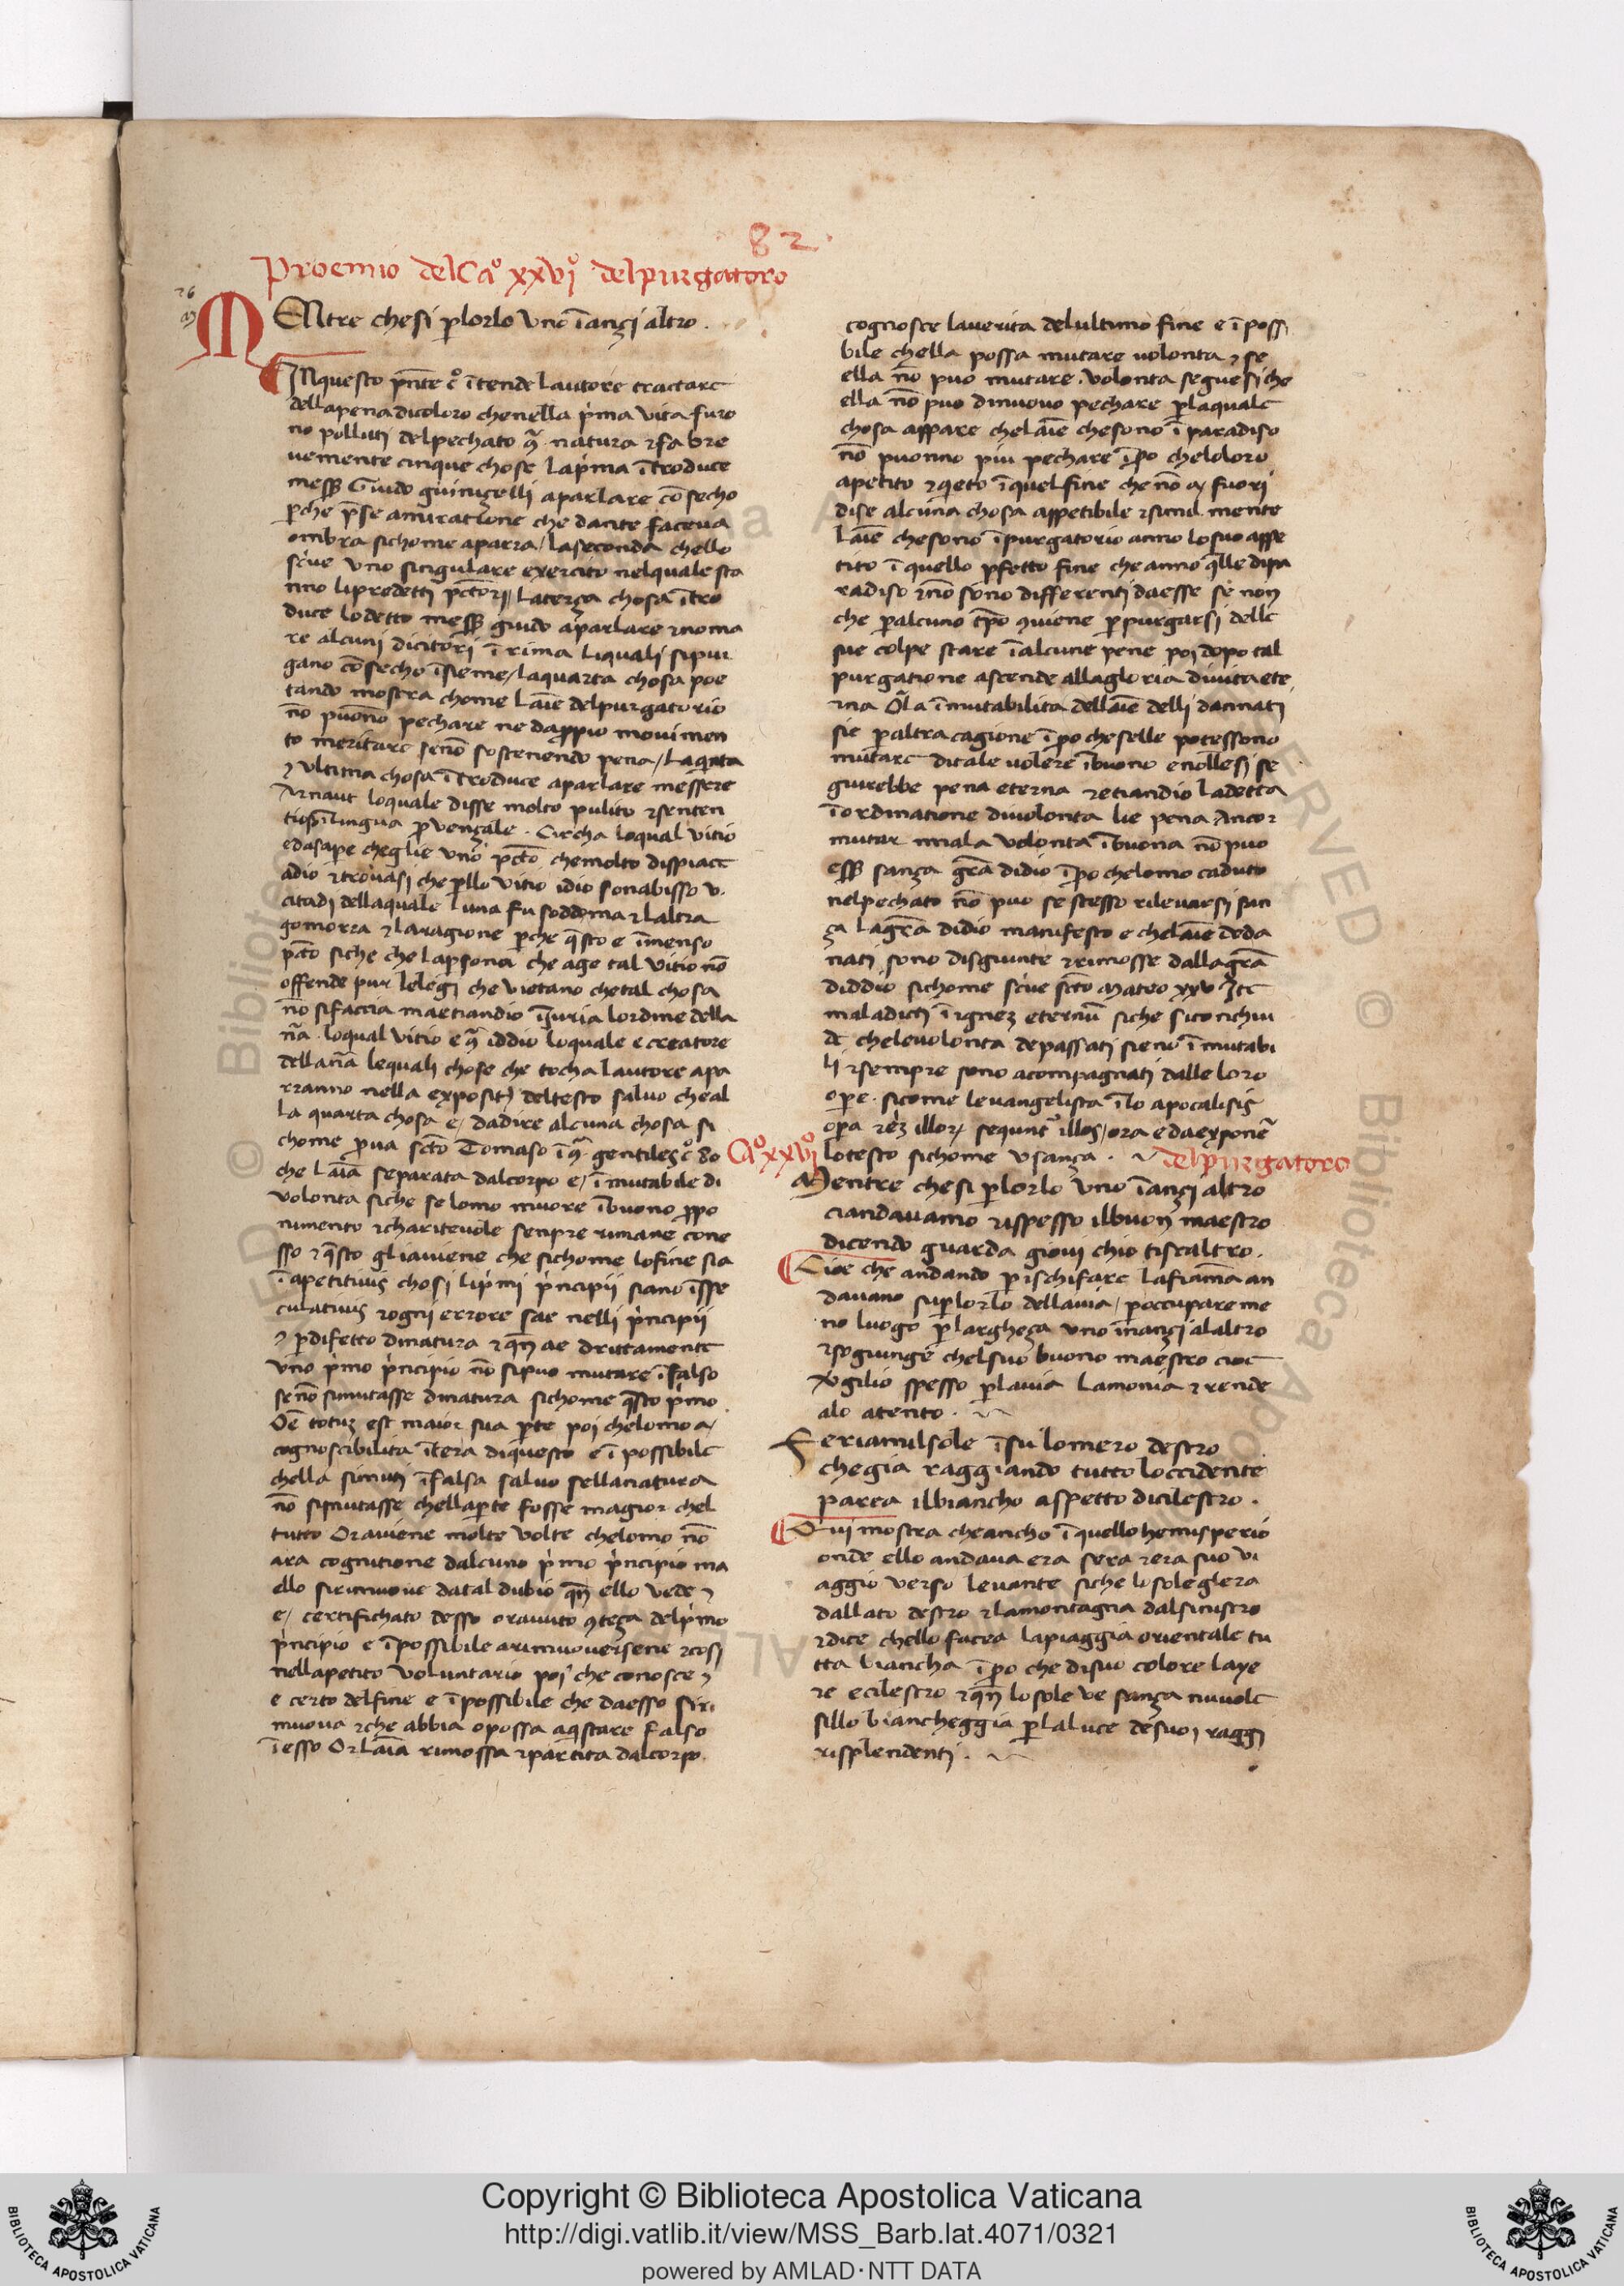 82
Proemio del Caº xxviº del purgatoro
26
m
MENtre chesi ꝑlorlo vno īanzi altro .
INquesto pn̄te cº ītende lautore tractare
dellapena dicoloro chenella pͥma vita furo
no polluti delpechato ꝯͣ natura ⁊fa bre
uemente cinque chose lapͥma ītroduce
mess̄ Guido guinizelli aparlare cōsecho
ꝑche p̄se amiratione che dante faceua
ombra sichome aparra / laseconda chello
sc̄ue vno singulare exercito nelquale sta
nno lipredetti pc̄tori / laterza chosa ītro
duce lodetto mess̄ guido aparlare ⁊noma
re alcuni dicitori ī rima liquali sipur
gano cōsecho īsieme / laquarta chosa poe
tando mostra chome laīe delpurgatorio
nō puonō pechare ne dappio mouimen
to meritare senō sostenendo pena / laqinta
⁊ vltima chosa ītroduce aparlare messere
Arnaut loquale disse molto pulito ⁊senten
tiosīlingua ꝓvenzale . Circha loqual vitio
edasape cheglie vno pc̄to chemolto dispiace
adio ⁊trouasi che ꝑllo vitio idio sonabisso v.
citadi dellaquale luna fu soddoma ⁊laltra
gomorra ⁊laragione ꝑche q̄sto e īmenso
pc̄to siche che laꝑsona che age tal vitio nō
offende pur lelegi che vietano chetal chosa
nō sifaccia maetiandio īiuria lordine della
nāa . loqual vitio e ꝯͣ iddio loquale e creatore
dellanāa lequali chose che tocha lautore apa
rranno nella expositōi deltesto saluo cheal
la quarta chosa e / dadire alcuna chosa si
chome ꝓua scō Tomaso ī ꝯͣ . gentiles cº 80
che laīa separata dalcorpo e / īmutabile di
volonta siche se lomo muore ībuono ꝓpo
nimento ⁊charitevole senpre rimane cone
sso ⁊q̄sto gliauiene che sichome lofine sta
īapetitiuis chosi lipͥmi pͥncipii stano īspe
culatiuis ⁊ogni errore sae nelli pͥncipii
⁊ ꝑdifetto dinatura ⁊qn̄ ae drittamente
vno pͥmo pͥncipio nō sipuo mutare īfalso
senō simutasse dinatura sichome q̄sto pͥmo .
Oē totuꝫ est maior sua ꝑte poi chelomo a /
cognoscibilita ītera diquesto e īpossibile
chella simuti īfalsa saluo sellanatura
nō simutasse chellaꝑte fosse magior chel
tutto Orauiene molte volte chelomo nō
ara cognitione dalcuno pͥmo pͥncipio ma
ello sirimuoue datal dubio qn̄ ello vede ⁊
e / certifichato desso orauuto ꝯteza delpͥmo
pͥncipio e īpossibile arimuouersene ⁊cosi
nellapetito voluntario poi che conosce ⁊
e certo delfine e īpossibile che daesso siri
muoua ⁊che abbia opossa aqistare falso
īesso Or laīa rimossa ⁊partita dalcorpo
cognosce lauerita delultimo fine e īpossi
bile chella possa mutare volonta ⁊ se
ella nō puo mutare . volonta seguesi che
ella nō puo dinuouo pechare ꝑlaquale
chosa appare chelaīe chesono ī paradiso
nō puonno piu pechare īꝑo cheloloro
apetito ⁊qieto īquelfine che nō a / fuori
dise alcuna chosa appetibile ⁊simil mente
laīe chesono īpurgatorio anno losuo appe
tito ī quello ꝑfetto fine che anno q̄lle dipa
radiso ⁊nō sono differenti daesse se non
che ꝑalcuno tp̄o ꝯuiene ꝑpurgarsi delle
sue colpe stare īalcune pene poi dopo tal
purgatione ascende allagloria diuita ete
rna Or la īmutabilita dellaīe delli dannati
sie ꝑaltra cagione īꝑo cheselle potessono
mutare ditale volere ībuono enollesi se
guirebbe pena eterna ⁊etiandio ladetta
īordinatione diuolonta lie pena Ancor
mutar mala volonta ībuona nō puo
ess̄ sanza grā didio īꝑo chelomo caduto
nelpechato nō puo se stesso rileuarsi san
za lagrā didio manifesto e chelaīe deda
nati sono disgiunte ⁊rimosse dallagrā
diddio sichome sc̄ue scō Mateo xxv Ite
maladicti ī igneꝫ eternū siche siconchiu
de chelevolonta depassati sieno īmutabi
li ⁊sempre sono acompagnati dalle loro
oꝑe . sicome levangelista ī lo apocalisis
oꝑa .n. illoꝝ sequnt̄ illos / ora edaexponē
Caº xxviº lotesto sichome vsanza . del purgatoro
Mentre chesi ꝑlorlo vno īanzi altro
ciandauamo ⁊ispesso ilbuon maestro
dicendo guarda gioui chio tiscaltro .
Cioe che andando ꝑischifare lafiama an
dauano suꝑlorlo dellauia / ꝑoccupare me
no luogo ꝑlargheza vno inanzi alaltro
⁊sogiunge chelsuo buono maestro cioe
vͥgilio spesso ꝑlauia lamonia ⁊rende
alo atento .
Feriamilsole īsu lomero destro
chegia raggiando tutto loccidente
parea ilbiancho aspetto dicilestro .
Qui mostra cheancho ī quello hemisperio
onde ello andaua era sera ⁊era suo vi
aggio verso leuante siche lo soleglera
dallato destro ⁊lamontagna dalsinistro
⁊dice chello facea lapiaggia orientale tu
tta biancha īꝑo che disuo colore laye
re ecilestro ⁊qn̄ losole ve sanza nuuole
sillo biancheggia ꝑlaluce desuoi raggi
risplendenti .
Copyright © Biblioteca Apostolica Vaticana
http://digi.vatlib.it/view/MSS_Barb.lat.4071/0321
powered by AMLAD·NTT DATA
BIBLIOTECA APOSTOLICA VATICANA
BIBLIOTECA APOSTOLICA VATICANA